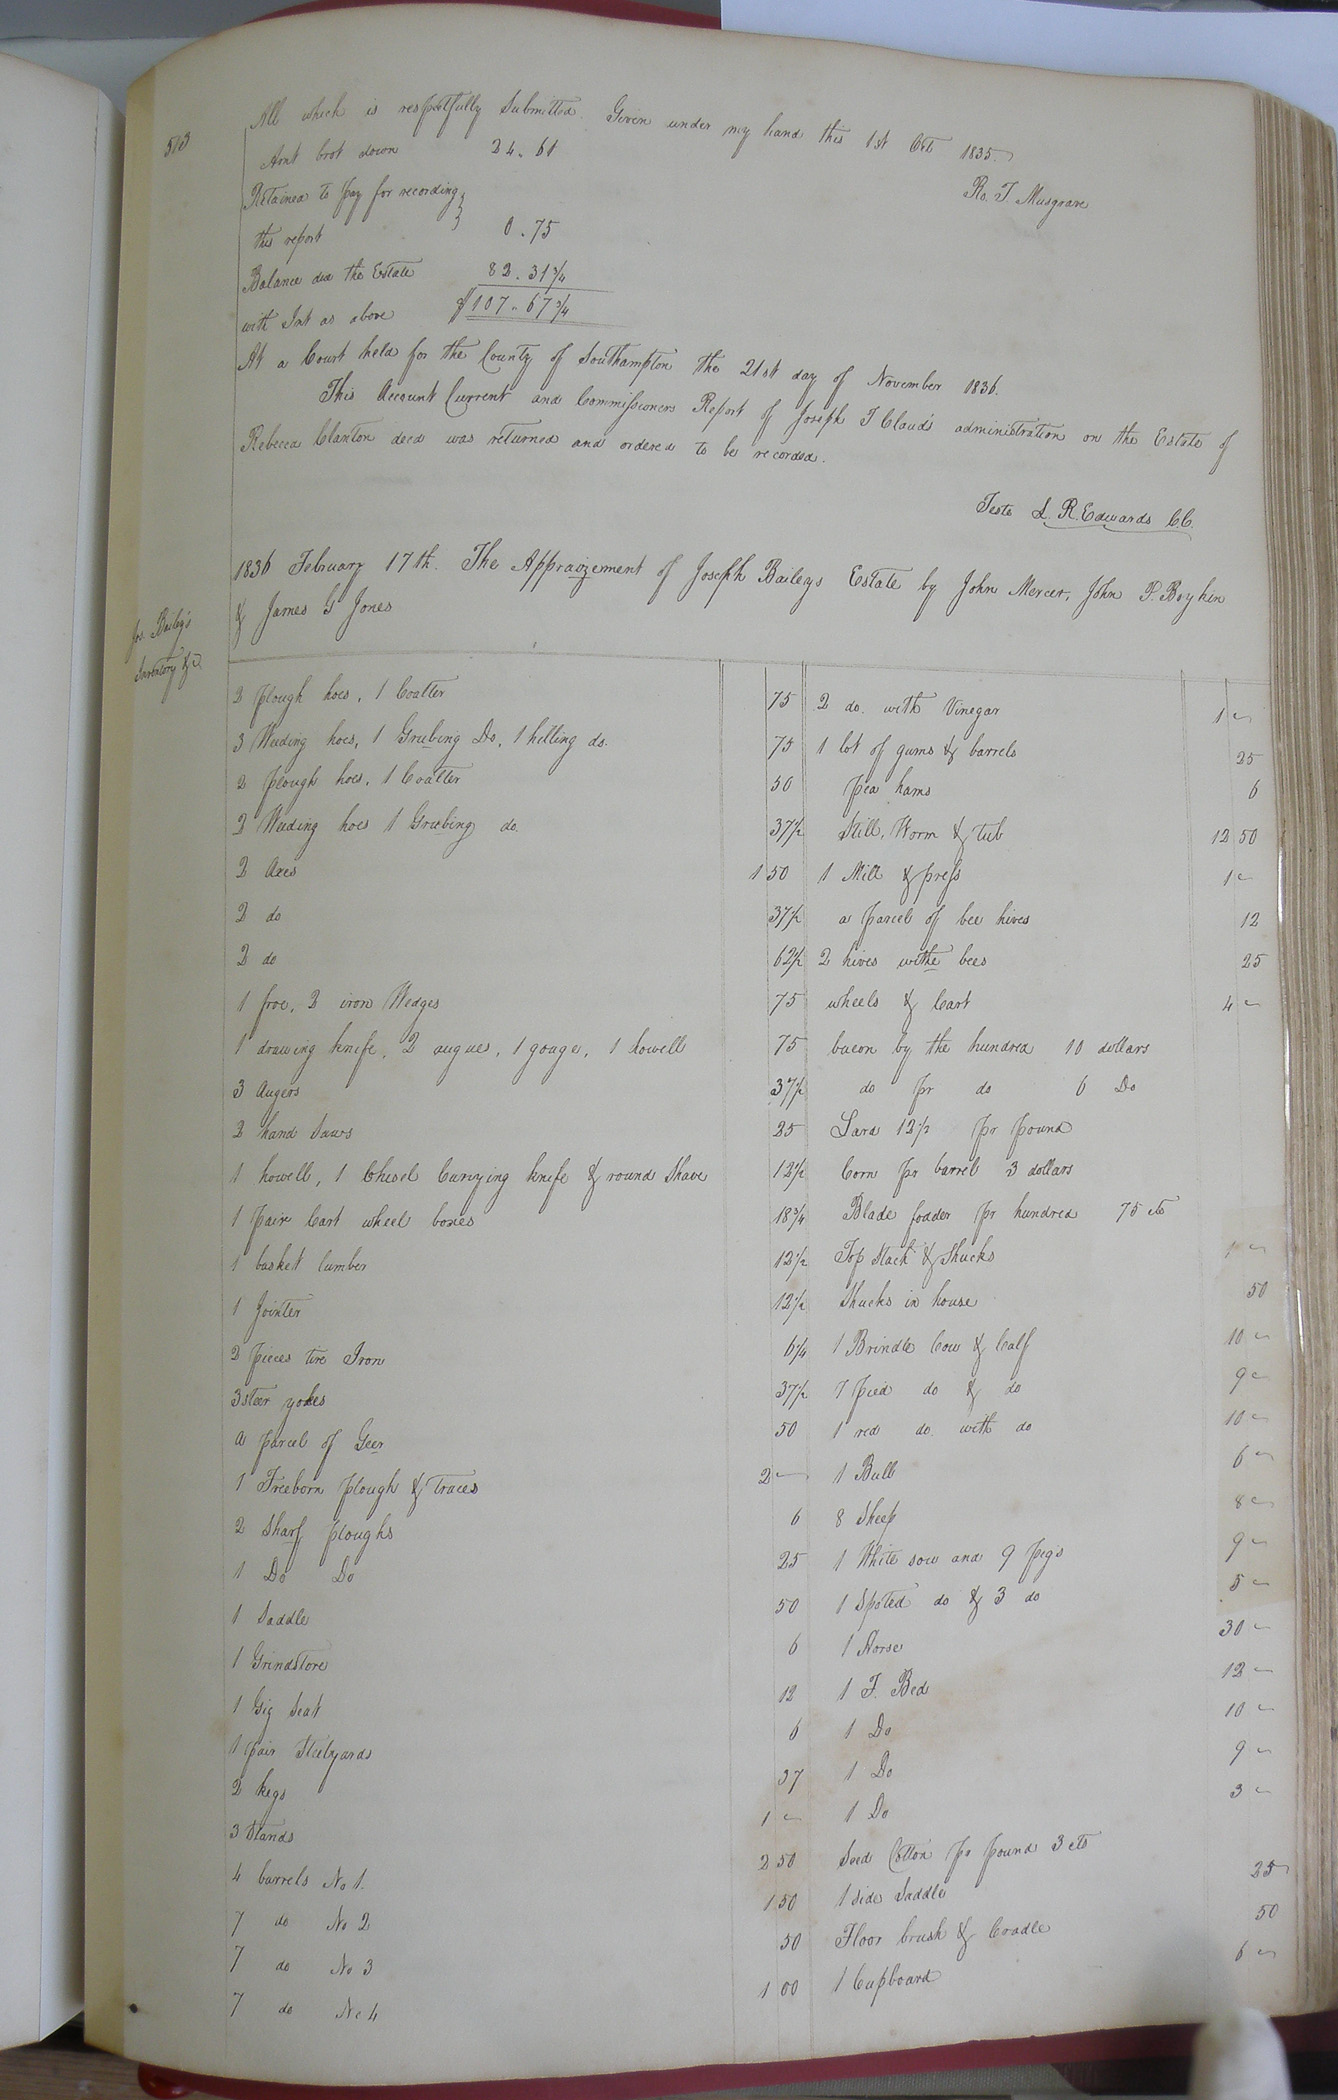 513
All which is respectfully Submitted. Given under my hand this 1st Oct 1835.
Amt brot down 24.61
Ro. T. Musgrave
Retained to pay for recording }
this report 0.75
Balance due the Estate 82.31¾
with Int as above $107.67¾
At a Court held for the County of Southampton the 21st day of November 1836.
This Account Current and Commissioners Report of Joseph T Claud's administration on the Estate of
Rebecca Clanton decd was returned and ordered to be recorded.
Teste L. R. Edwards C.C.
1836 February 17th. The Appraizement of Joseph Baileys Estate by John Mercer, John P. Boykin
& James G Jones
Jos. Bailey's
Inventory &c
2 plough hoes, 1 Coalter 75
3 Weeding hoes, 1 Grubing Do, 1 hilling do. 75
2 plough hoes, 1 Coalter 50
2 Weeding hoes 1 Grubing do. 37½
2 Axes 1 50
2 do 37½
2 do 62½
1 froe, 2 iron Wedges 75
1 drawing knife, 2 augues, 1 gouge, 1 howell 75
3 Augers 37½
2 hand Saws 25
1 howell, 1 Chisel Currying knife & round Shave 12½
1 pair Cart wheel boxes 18¾
1 basket lumber 12½
1 Jointer 12½
2 pieces tire Iron 6¼
3 steer yokes 37½
a parcel of Geer 50
1 Freeborn plough & traces 2 -
2 Sharp ploughs 6
1 Do Do 25
1 Saddle 50
1 Grindstone 6
1 Gig Seat 12
1 pair Steelyards 6
2 kegs 37
3 Stands 1 -
4 barrels No 1. 2 50
7 do No 2 1 50
7 do No 3 50
7 do No 4 1 00
2 do. with Vinegar 1 -
1 lot of gums & barrels 25
pea hams 6
Still, Worm & tub 12 50
1 Mill & press 1 -
a parcel of bee hives 12
2 hives withe bees 25
wheels & Cart 4 -
bacon by the hundred 10 dollars
do pr do 6 Do
Lard 12½ pr pound
Corn pr barrel 3 dollars
Blade fodder pr hundred 75 cts
Top Stack & Shucks 1 -
Shucks in house 50
1 Brindle Cow & Calf 10 -
1 pied do & do 9 -
1 red do with do 10 -
1 Bull 6 -
8 Sheep 8 -
1 White sow and 9 pigs 9 -
1 Spoted do & 3 do 5 -
1 Horse 30 -
1 F. Bed 12 -
1 Do 10 -
1 Do 9 -
1 Do 3 -
Seed Cotton pr pound 3 cts
1 side Saddle 25
Floor brush & Cradle 50
1 Cupboard 6 -